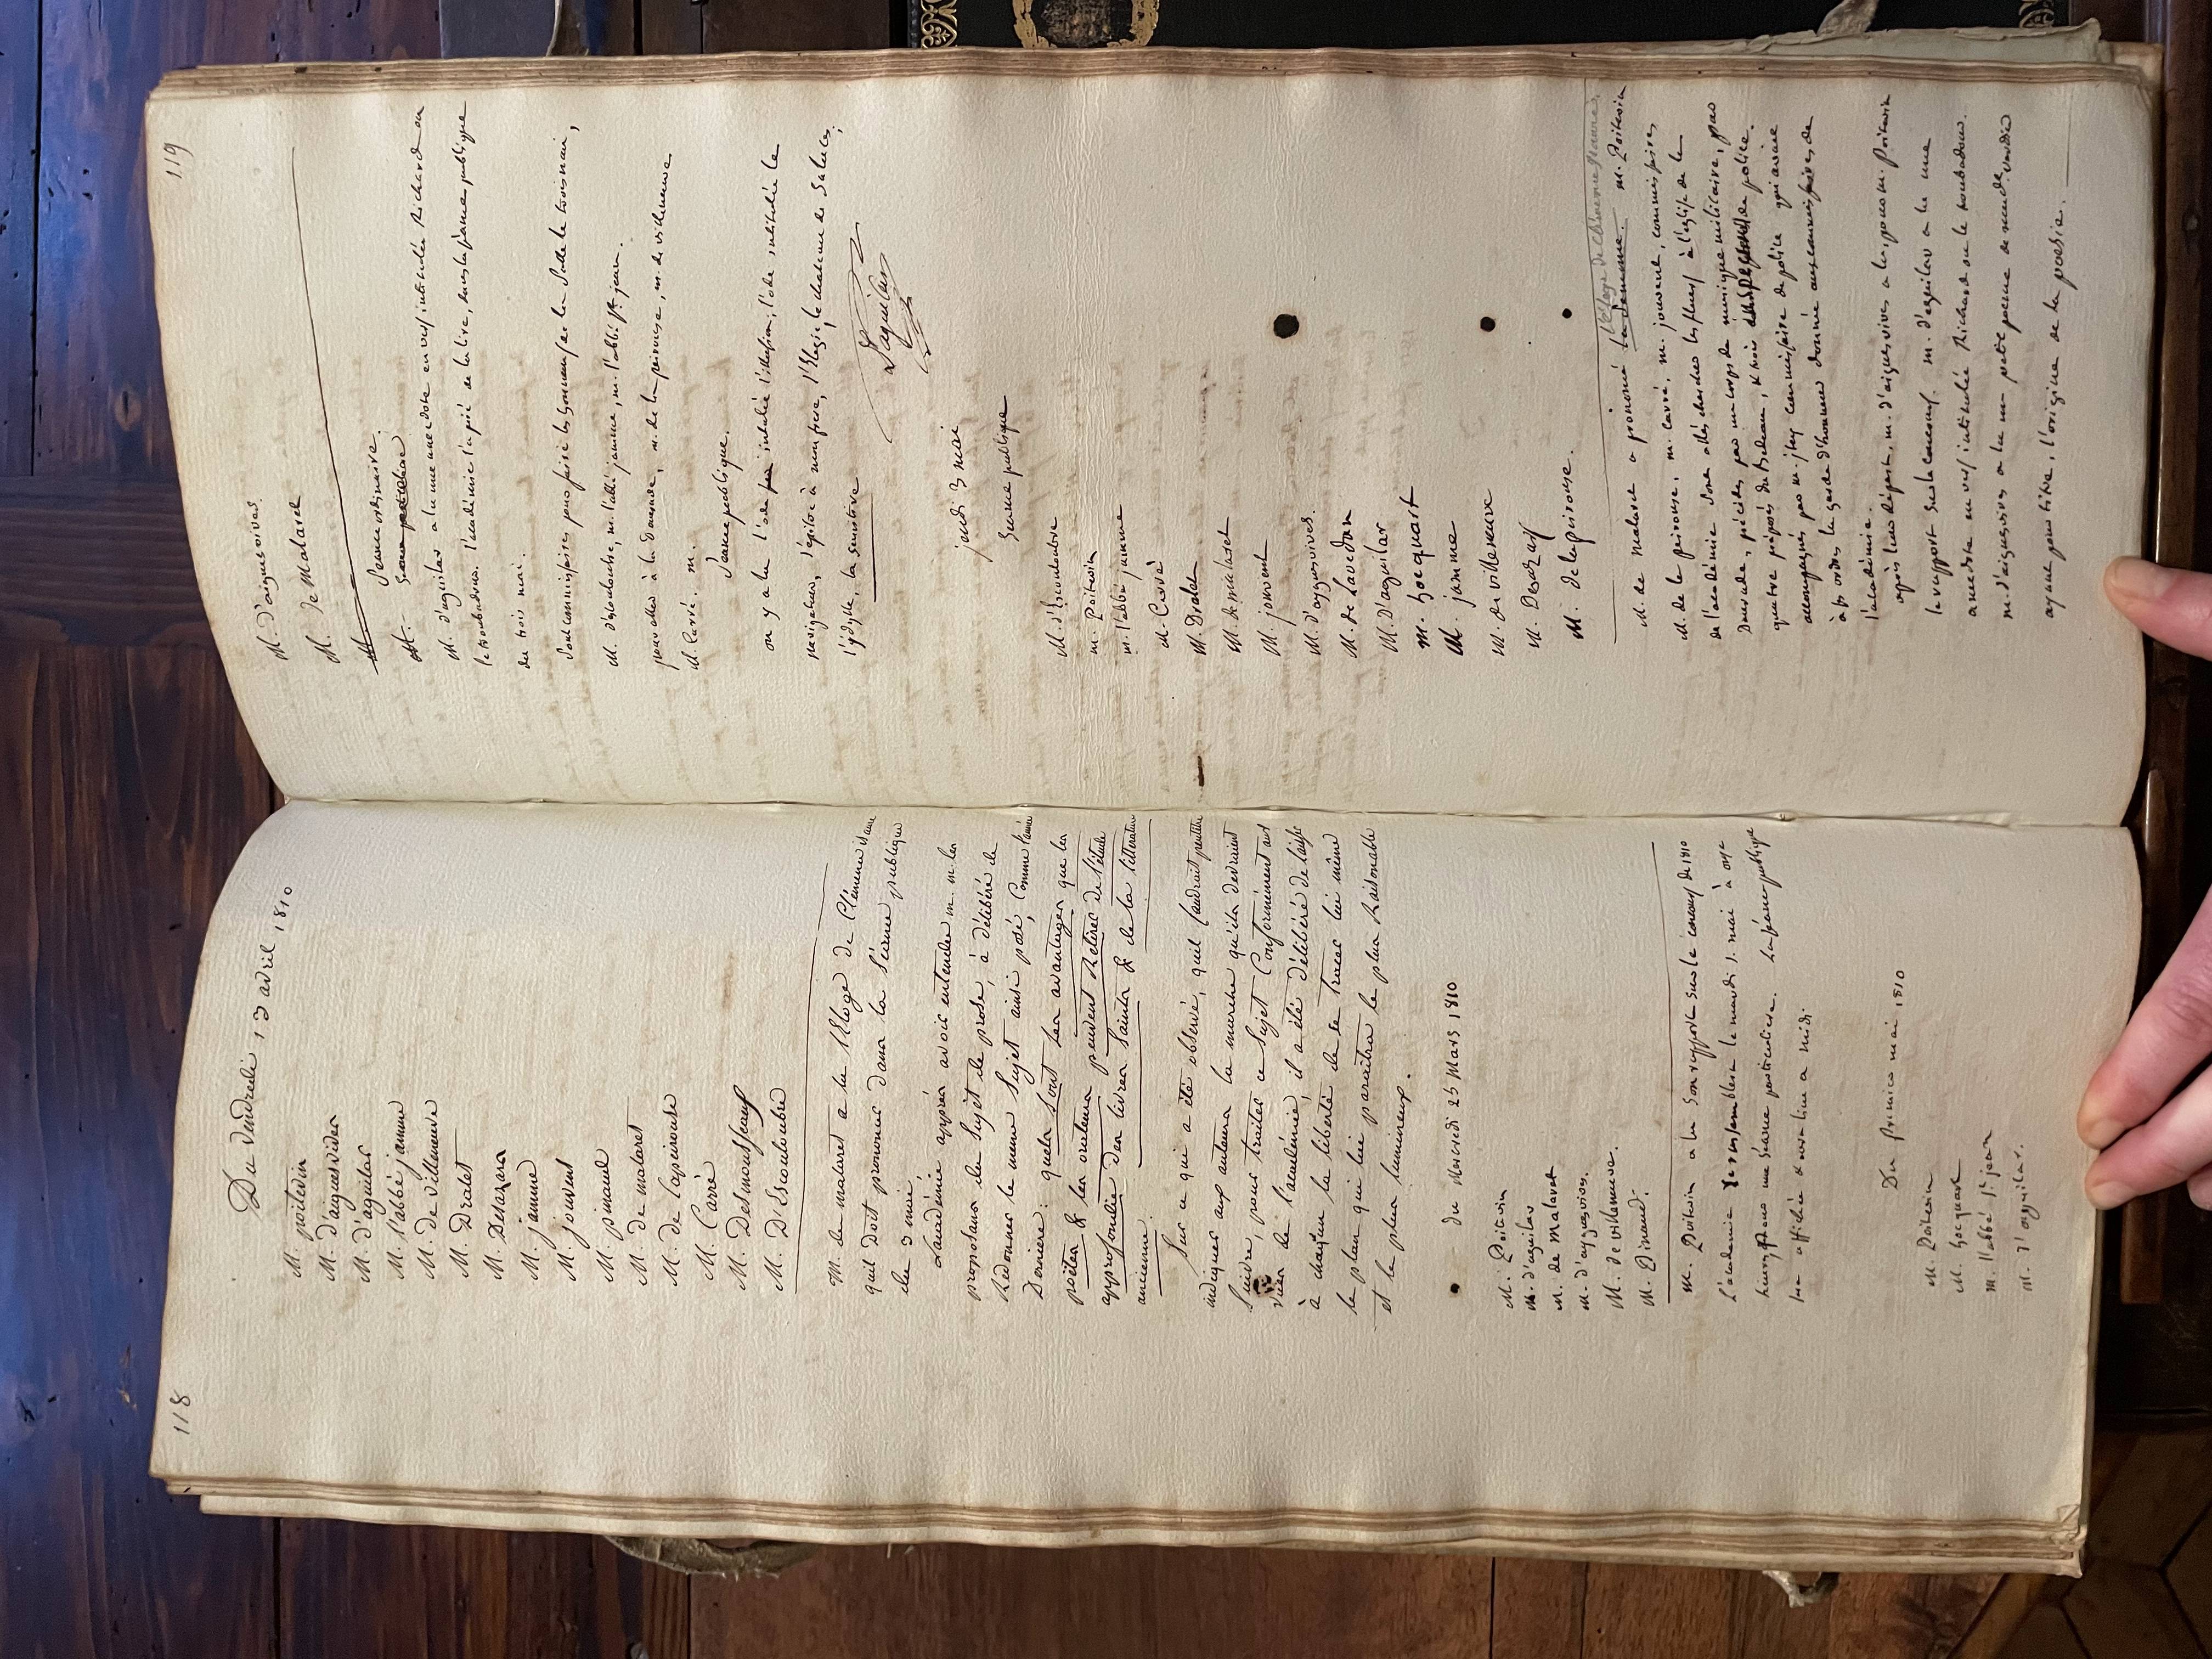 118
Du Vendredi, 13 avril, 1810
M. poitevin
M. d'aiguesvives
M. d'aguilar
M. l'abbé jamme
M. de villeneuve
M. Dralet
M. Desazars
M. jamme
M. jouvent
M. pinaud
M. de malaret
M. de Lapeirouse
M. Carré
M. Desmousseaux
M. D'Escouloubre
M. de malaret a lu l'Eloge de Clémence isaure
qu'il doit prononcer dans la séance publique
du 3 mai.
L'académie après avoir entendu m. m. les
proposans du Sujet de prose, a délibéré de
Redonner le meme Sujet ainsi posé, Comme l'année
Derniere: quels sont les avantages que les
poëtes & les orateurs peuvent Retirer de l'étude
approfondie des livres Saints & de la littérature
ancienne.
Sur ce qui a été observé, quil faudroit peutetre
indiquer aux auteurs la marche qu'ils devraient
suivre, pour traiter ce Sujet Conformément aux
vues de l'académie, il a été délibéré de laisser
à chacun la liberté de se tracer lui même
le plan qui lui paraitra le plus Raisonable
et le plus lumineux.
du Mercredi 25 Mars 1810
M. Poitevin
M. d'aguilar
M. de Malaret
M. d'ayguesvives.
M. de villeneuve.
M. Pinaud.
M. Poitevin a lu son rapport sur le concours de 1810
L'académie se rassemblera le mardi 1. mai à onze
heures pour une séance particuliere. La séance publique
sera affichée & ouverte a midi.
Du premier mai 1810
M. Poitevin
M. hocquart
M. l'abbé St jean
M. d'aguilar.
119
M. d'aiguesvives.
M. de Malaret
Séance ordinaire.
M. d'aguilar a lu une anecdote en vers intitulée Richard ou
le troubadour. l'académie l'a prié de la lire, dans la séance publique
du trois mai.
Sont commissaires pour faire les honneurs de la Salle le trois mai,
M. d'escouloubre, m. l'abbé jamme, m. l'abbé St jean.
pour aller à la Daurade, m. de la peirouse, m. de villeneuve
M. Carré. m.
Séance publique.
on y a lu l'ode intitulée l'illusion; l'ode intitulée le
navigateur, l'épitre à mon frere, l'Elégie, le chateau de Saluces,
l'ydylle, la sensitive
D'aguilar
jeudi 3 mai
Séance publique
M. d'Escouloubre
m. Poitevin
m. l'abbé jamme
M. Carré
M. Dralet
M. de malaret
M. jouvent
M. d'ayguesvives.
M. de Lavedan
M. D'aguilar
M. hocquart
M. jamme
M. de villeneuve
M. Desazars
M. de lapeirouse.
l'éloge de Clémence Isaure.
M. de malaret a prononcé la semonce. m. Poitevin
M. de la peirouse, m. Carré, m. jouvent, commissaires
de l'académie sont allés chercher les fleurs à l'église de la
Daurade, précédés par un corps de musique militaire, par
quatre préposés du Bedeau, & trois de police.
accompagnés par m. commissaire de police qui avoit
à ses ordres la garde d'honneur donnée aux commissaires de
l'académie.
après leur départ, m. d'aiguesvives a lu, pour m. Poitevin
le rapport sur le concours. m. d'aguilar a lu une
anecdote en vers intitulée Richard ou le troubadour.
m. d'aiguesvives a lu un petit poeme de m. de
ayant pour titre, l'origine de la poésie.